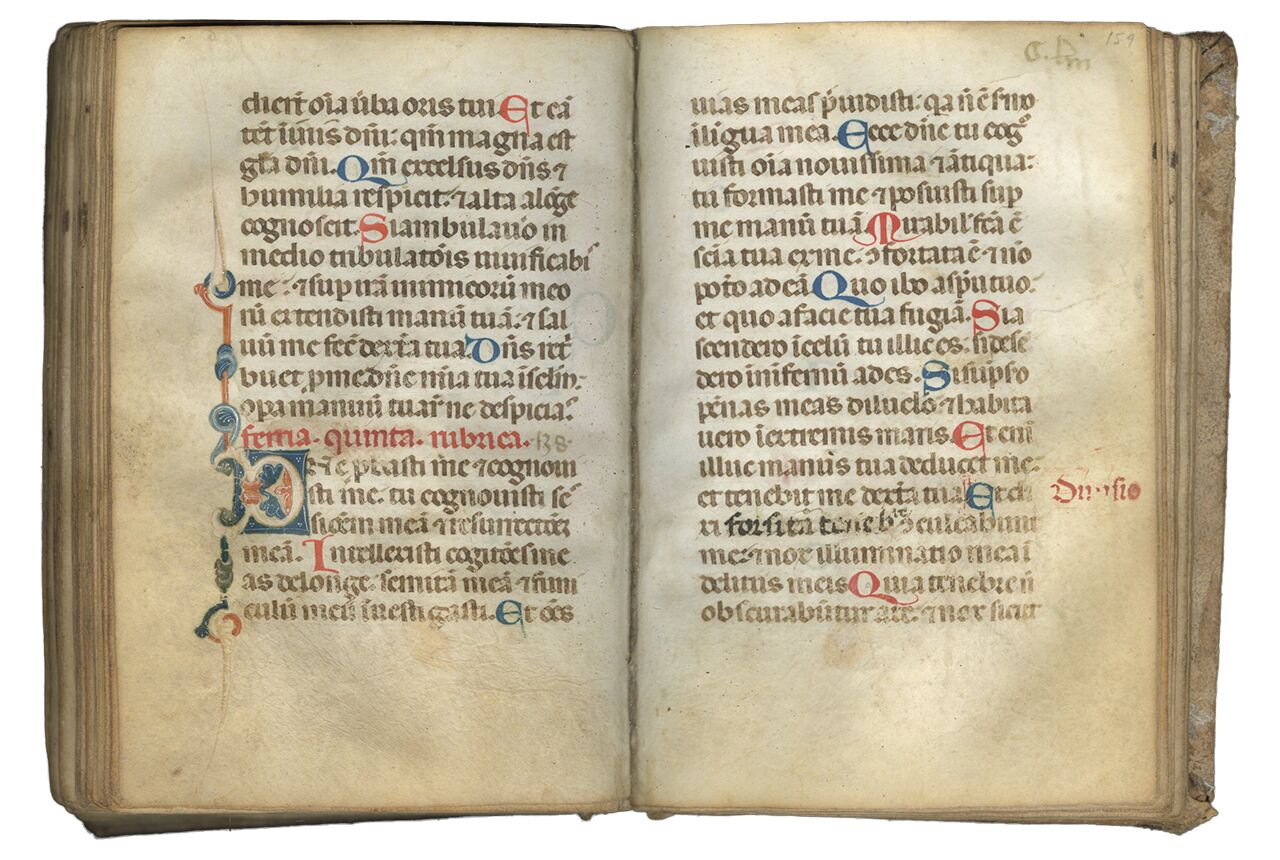 dierūt oīa ūba oris tui. Et cā
tēt ī uiis dn̄i: qm̄ magna est
gl̄a dn̄i. Qm̄ excelsus dn̄s ⁊
humilia respicit: ⁊ alta alōge
cognoscit. Si ambulauo in
medio tribulatōis uiuificabis
me: ⁊ sup irā inimicorū meo
rū extendisti manū tuā: ⁊ sal
uū me fec̄ dext̄a tua. Dn̄s ret̄
buet p̄ me: dn̄e mīa tua ī sclm̄:
opa manuū tuar̄ ne despicias.
feria. quinta. rubrica. 138
Dn̄e p̄basti me ⁊ cognoui
sti me: tu cognouisti se
ssioēm meā ⁊ resurrectōēȝ
meā. Intellexisti cogitōēs me
as de longe: semitā meā ⁊ funi
culū meū īuestigasti. Et oēs
159
uias meas p̄uidisti: qa n̄ ē smo
ī ligua mea. Ecce dn̄e tu cog
uisti oīa nouissima ⁊ ātiqua:
tu formasti me ⁊ posuisti sup
me manū tuā. Mirabil' fc̄a ē
scīa tua ex me: ꝯfortata ē ⁊ nō
poto ad eā. Quo ibo a spū tuo:
et quo a facie tua fugiā. Si a
scendero ī celū tu illic es: si desē
dero in infernū ades. Si sūpso
pēnas meas diluclo ⁊ habita
uero ī extremis maris. Et enī
illuc manus tua deducet me:
et tenebit me dext̄a tua. Et di
Diuisio
xi forsitā tenebre ꝯculcabunt
me: ⁊ nox illuminatio mea ī
delitiis meis. Quia tenebre n̄
obscurabūtur a te: ⁊ nox sicut